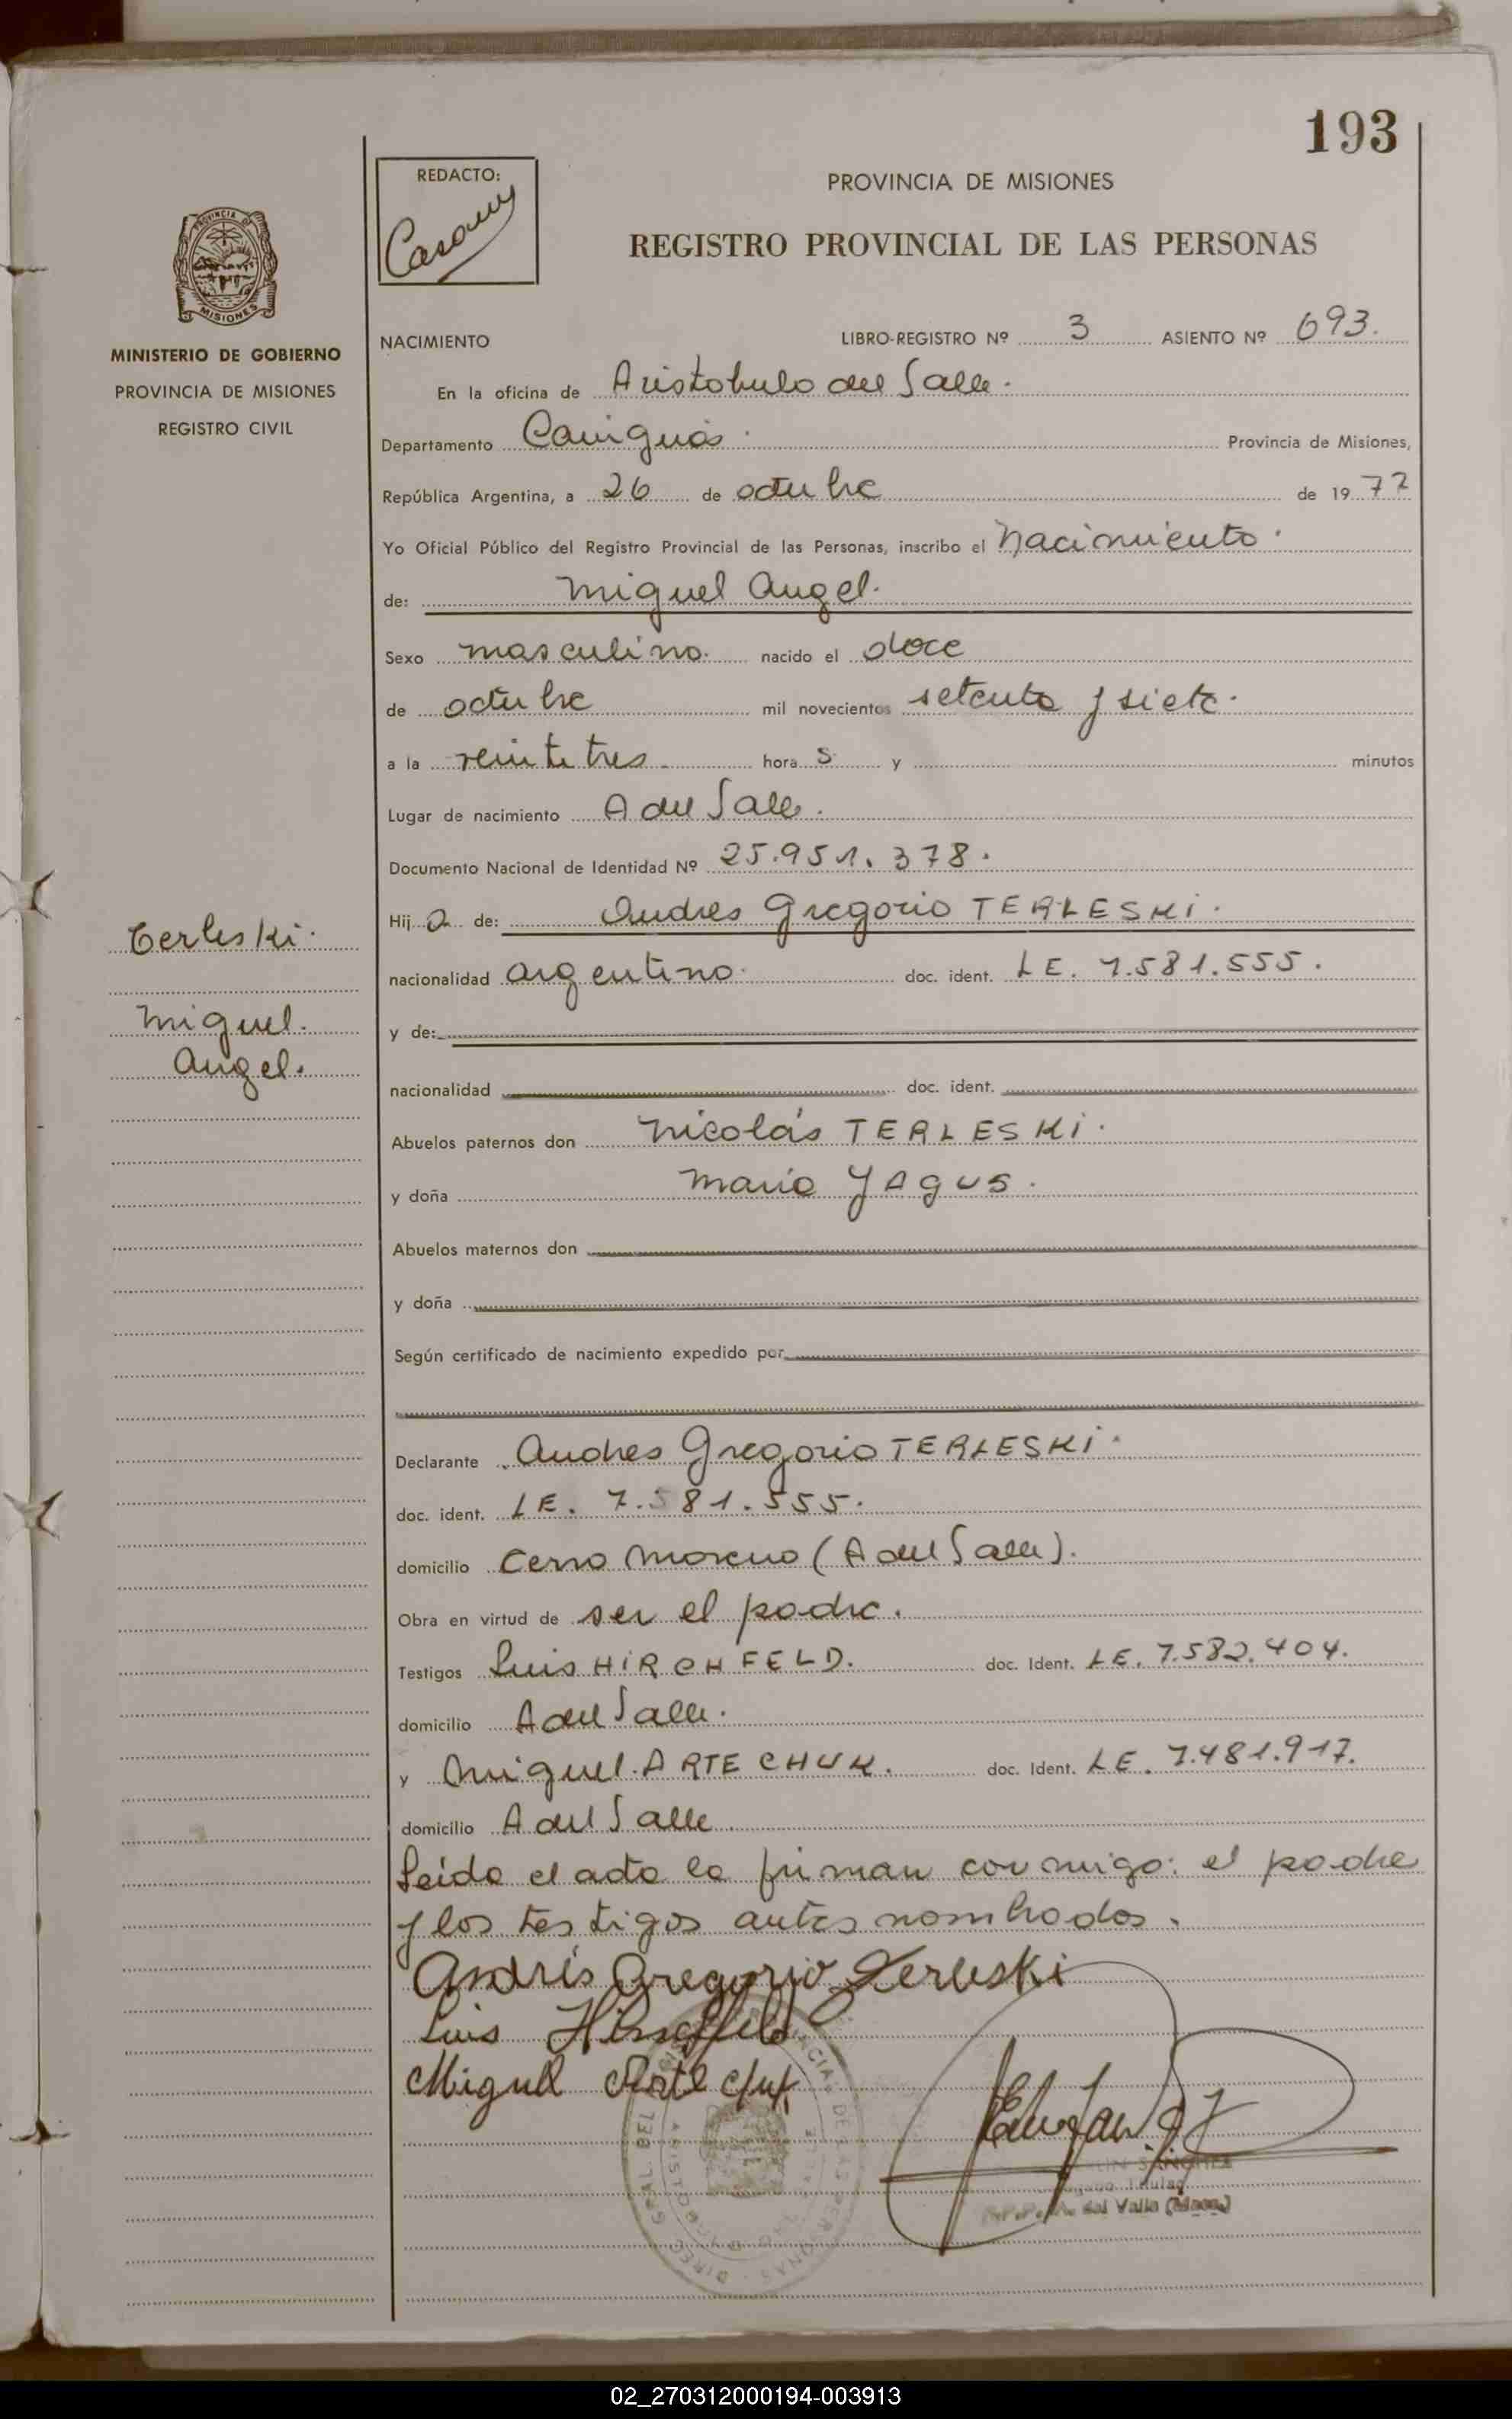 193
REDACTO:
PROVINCIA DE MISIONES
REGISTRO PROVINCIAL DE LAS PERSONAS
MINISTERIO DE GOBIERNO
PROVINCIA DE MISIONES
REGISTRO CIVIL
NACIMIENTO LIBRO-REGISTRO Nº 3 ASIENTO Nº 693.
En la oficina de Aristobulo del Valle.
Departamento Cainguás. Provincia de Misiones,
República Argentina, a 26 de octubre de 1977
Yo Oficial Público del Registro Provincial de las Personas, inscribo el Nacimiento.
de: Miguel Angel.
Sexo masculino. nacido el doce
de octubre mil novecientos setenta y siete.
a la veintitres hora s y minutos
Lugar de nacimiento A del Valle.
Documento Nacional de Identidad Nº 25.951.378.
Hij o de: Andres Gregorio TERLESKI.
nacionalidad argentino. doc. ident. LE. 7.581.555.
y de:
nacionalidad doc. ident.
Terleski.
Miguel.
Angel.
Abuelos paternos don Nicolás TERLESKI.
y doña Maria YAGUS.
Abuelos maternos don
y doña
Según certificado de nacimiento expedido por
Declarante Andres Gregorio TERLESKI.
doc. ident. LE. 7.581.555.
domicilio Cerro Moreno (A del Valle).
Obra en virtud de ser el padre.
Testigos Luis HIRCHFELD. doc. Ident. LE. 7.582.404.
domicilio A del Valle.
y Miguel ARTECHUK. doc. Ident. LE. 7.481.917.
domicilio A del Valle
Leída el acta la firman conmigo: el padre
y los testigos antes nombrados.
Andrés Gregorio Terleski
Luis
Miguel
SANCHEZ
Titular
del Valle (Mnes)
02_270312000194-003913